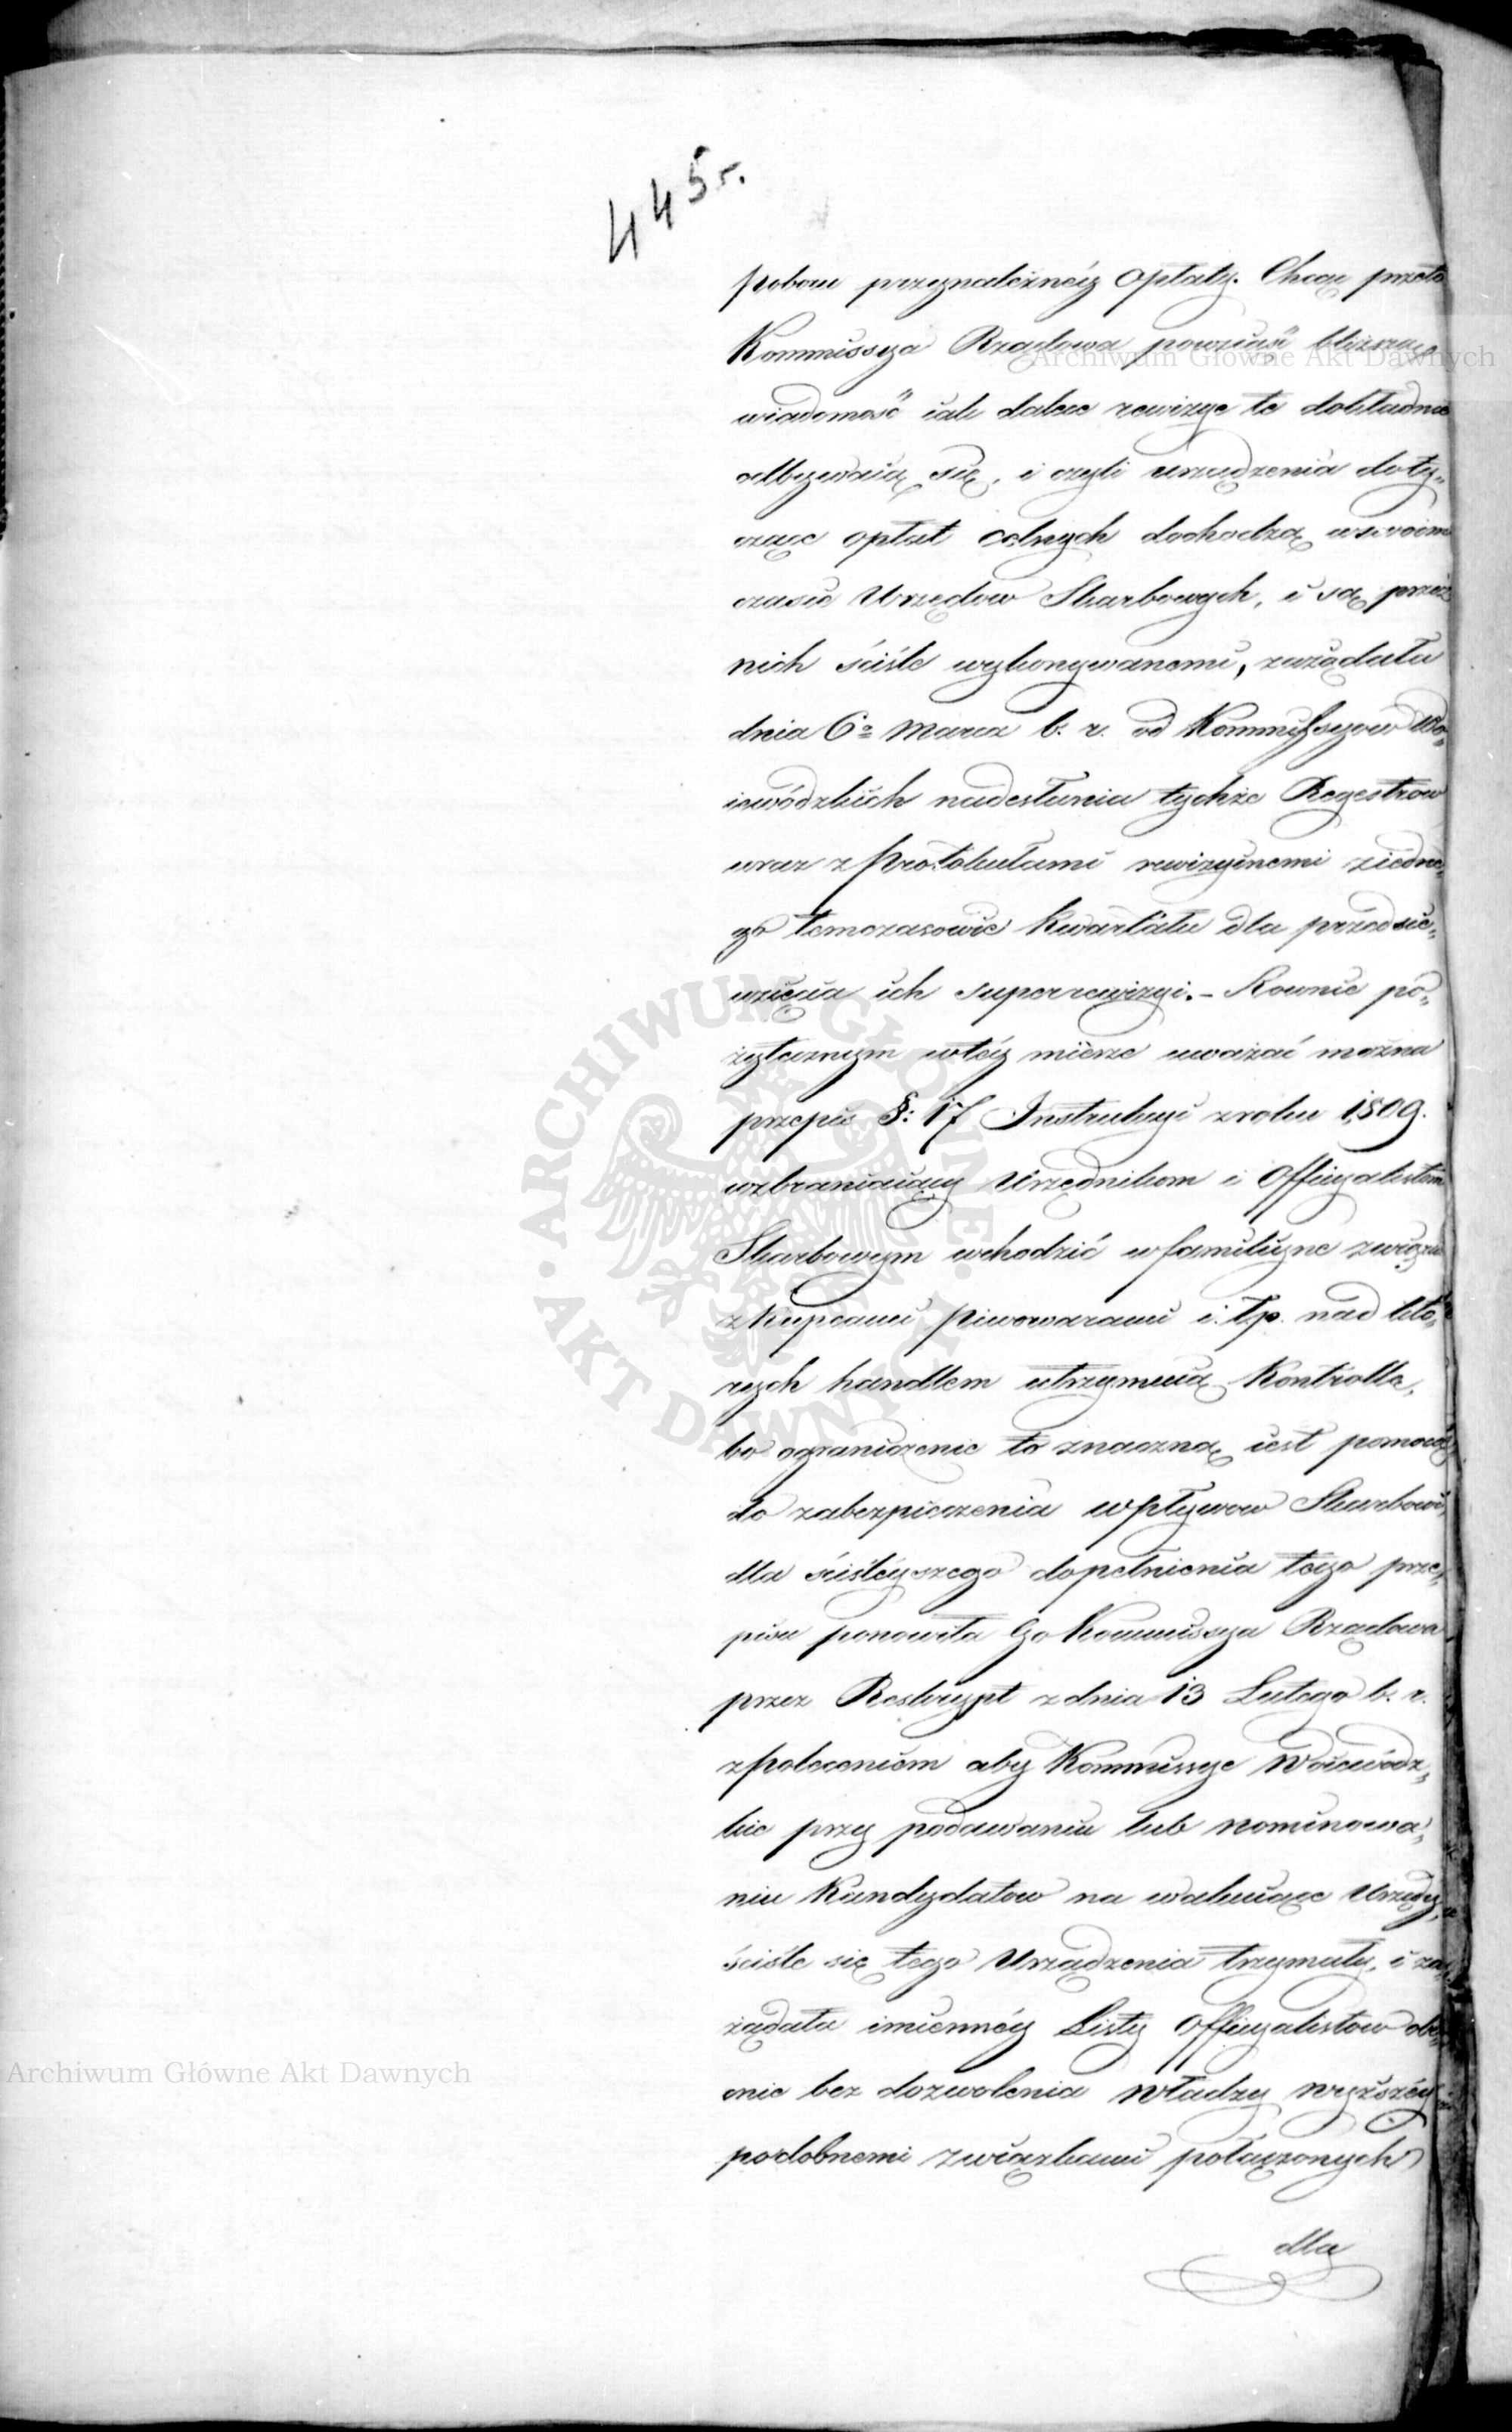 445r.
poboru przynależnéy Opłaty. Chcąc przeto
Kommissya Rządowa powziąść bliższą
wiadomość iak dalece rewizye te dokładnie
odbywaią się, i czyli urządzenia doty„
czące opłat Celnych dochodzą wswoim
czasie Urzędow Skarbowych, i są przez
nich ściśle wykonywanemi, zażądała
dnia 6º Marca b. r. od Kommissyow Wo„
iewódzkich nadesłania tychże Regestrow
wraz z Protokułami rewizyinemi ziedne„
go tymczasowie Kwartału dla przedsię„
wzięcia ich superrewizyi. – Rownie po„
żytecznym wtéy mierze uważać można
przepis §: 17 Instrukcyi zroku 1809.
wzbraniaiący Urzędnikom i Officyalistom
Skarbowym wchodzić w familiyne związki
z Kupcami Piwowarami i. t.p. nad któ„
rych handlem utrzymuią Kontrolle,
bo ograniczenie to znaczną iest pomocą
do zabezpieczenia wpływow Skarbowi,
dla ściśléyszego dopełnienia tego prze„
pisu ponowiła go Kommissya Rządowa
przez Reskrypt z dnia 13 Lutego b. r.
z poleceniem aby Kommissye Woiewódz„
kie przy podawaniu lub nominowa„
niu Kandydatow na wakuiące Urzędy,
ściśle się tego Urządzenia trzymały, i za„
żądała imiennéy Listy Officyalistow obe„
cnie bez dozwolenia Władzy wyższéy
podobnemi związkami połączonych
dla
Archiwum Główne Akt Dawnych
Archiwum Główne Akt Dawnych
ARCHIWUM GŁÓWNE AKT DAWNYCH